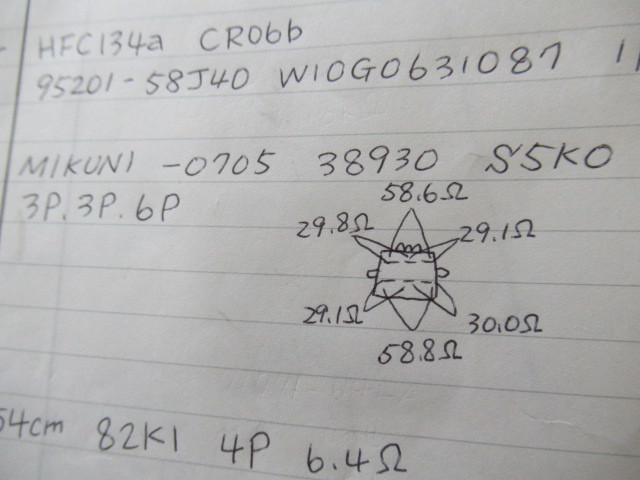 HFC134a CR06b
95201-58J40 W10G0631087
MIKUNI -0705 38930 S5K0
3P.3P.6P
58.6Ω
29.8Ω 29.1Ω
29.1Ω 30.0Ω
58.8Ω
54cm 82K1 4P 6.4Ω